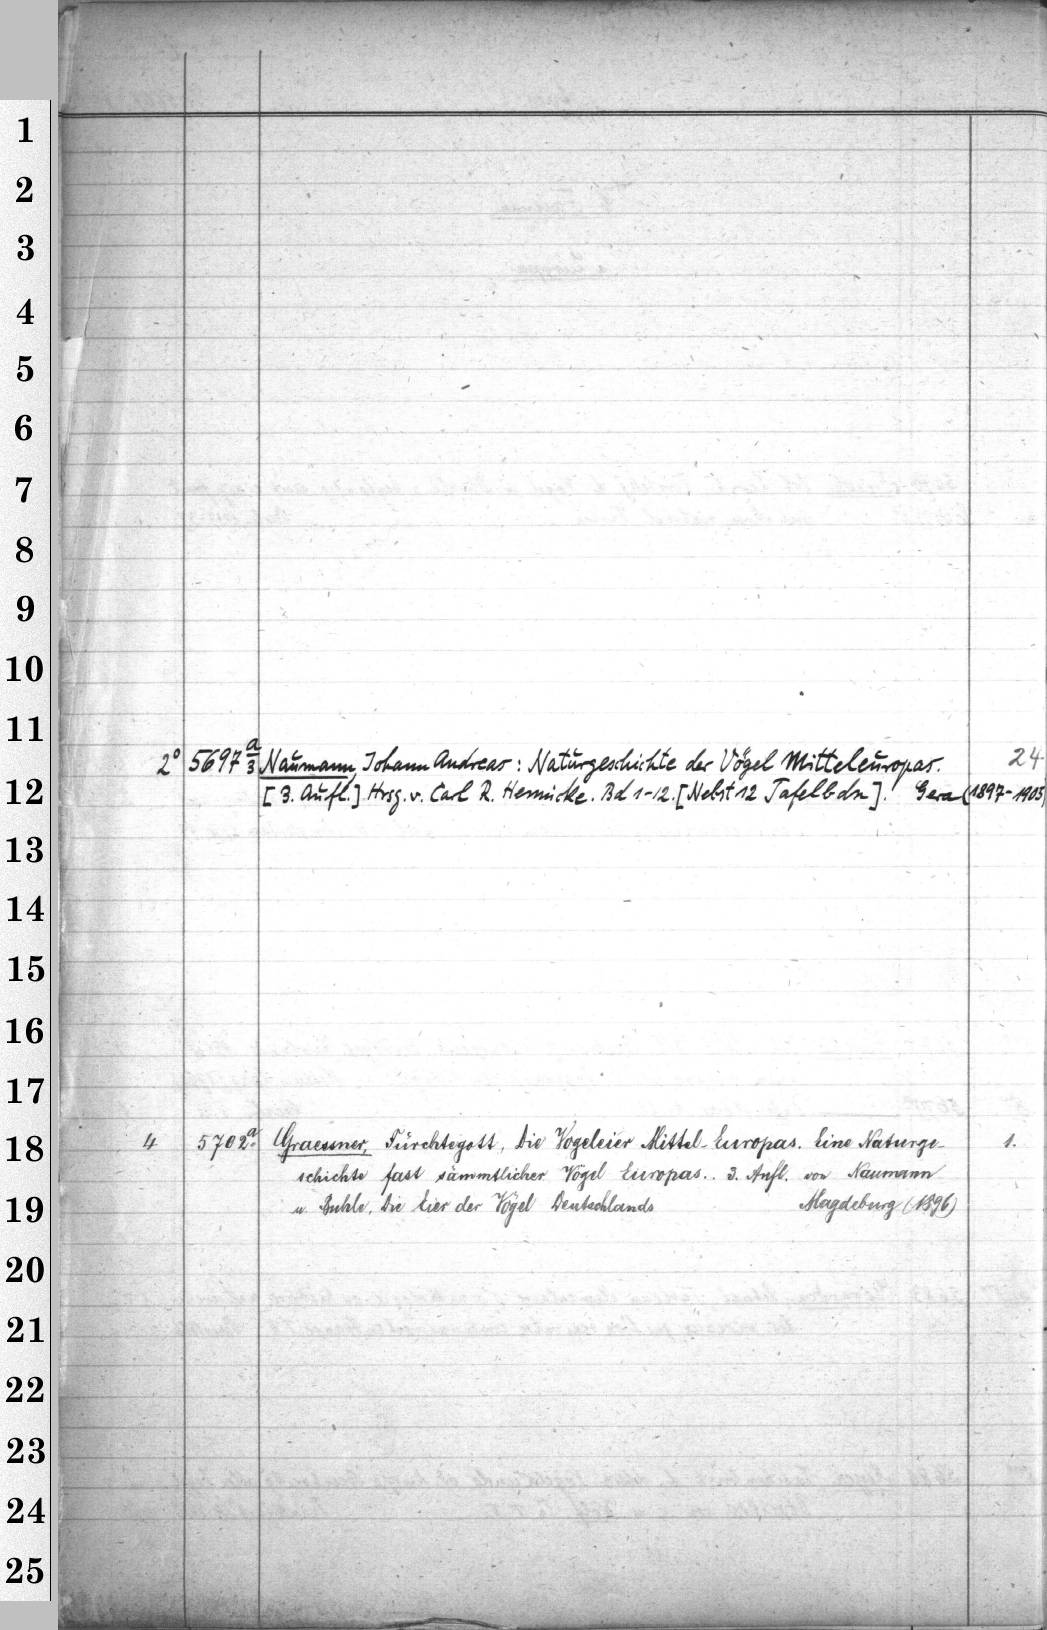 1
2
3
4
5
6
7
8
9
10
11
2° 5697 a/3 Naumann, Johann Andreas: Naturgeschichte der Vögel Mitteleuropas. 24
12 [3. Aufl.] Hrsg. v. Carl R. Hennicke. Bd 1-12. [Nebst 12 Tafelbdn]. Gera (1897-1905)
13
14
15
16
17
18 4 5702a Graessner, Fürchtegott, Die Vogeleier Mittel-Europas. Eine Naturge- 1.
schichte fast sämmtlicher Vögel Europas.. 3. Aufl. von Naumann
19 u. Buhle, Die Eier der Vögel Deutschlands Magdeburg (1896)
20
21
22
23
24
25